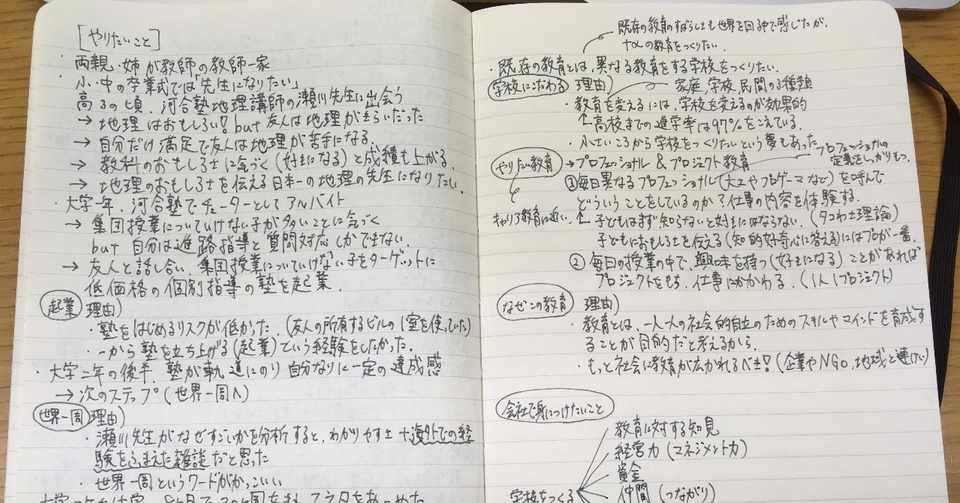 [やりたいこと]
・両親・姉が教師の教師一家
小・中の卒業式では「先生になりたい」
高3の頃、河合塾地理講師の瀬川先生に出会う
→ 地理はおもしろい? but 友人は地理がきらいだった
→ 自分だけ満足で友人は地理が苦手になる
→ 教科のおもしろさに気づく(好きになる)と成績も上がる。
→ 地理のおもしろさを伝える日本一の地理の先生になりたい。
・大学一年、河合塾でチューターとしてアルバイト
→ 集団授業についていけない子が多いことに気づく
but 自分は進路指導と質問対応しかできない。
→ 友人と話し合い、集団授業についていけない子をターゲットに
低価格の個別指導の塾を起業。
起業 理由)
・塾をはじめるリスクが低かった。(友人の所有するビルの1室を使っていた)
・一から塾を立ち上げる(起業)ていう経験をしたかった。
・大学二年の後半、塾が軌道にのり自分なりに一定の達成感
→ 次のステップ(世界一周へ)
世界一周 理由)
・瀬川先生がなぜすごいかを分析すると、わかりやすさ+海外での経
験をふまえた雑談だと思った
・世界一周というワードがかっこいい
既存の教育のすばらしさも世界を回る中で感じたが、
+αの教育をつくりたい。
・既存の教育とは、異なる教育をする学校をつくりたい。
学校にこだわる 理由)
家庭、学校、民間の3種類
・教育を変えるには、学校を変えるのが効果的
↑高校までの進学率は97%をこえている。
・小さいころから学校をつくりたいという夢もあった。
プロフェッショナルの
定義をしっかりもつ。
やりたい教育 → プロフェッショナル & プロジェクト教育
①毎日異なるプロフェッショナル(大工やプロゲーマなど)を呼んで
どういうことをしているのか?仕事の内容を体験する。
キャリア教育に近い
↑ 子どもはまず知らないと好きにはならない。(タコわさ理論)
子どもにおもしろさを伝える(知的好奇心に答える)にはプロが一番。
② 毎日の授業の中で、興味を持つ(好きになる)ことがあれば
プロジェクトをもち、仕事にかかわる。(1人1プロジェクト)
なぜこの教育 理由)
・教育とは、一人一人の社会的自立のためのスキルやマインドを育成す
ることが目的だと考えるから。
・もっと社会に教育が広がれるべき!(企業やNGO、地域と連けい)
会社で身につけたいこと
教育に対する知見
経営力(マネジメント力)
資金
学校をつくる
仲間(つながり)